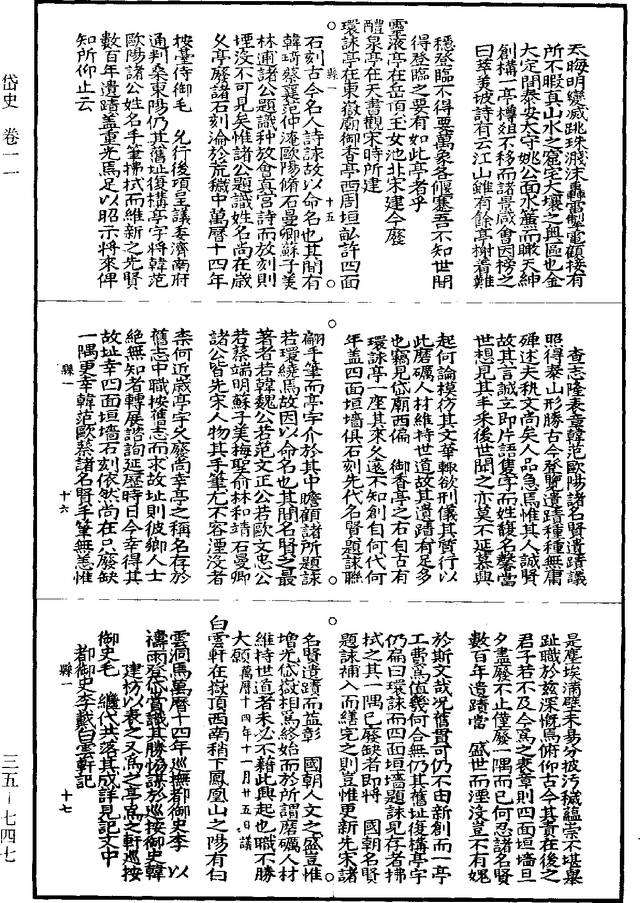 岱史 卷一一
三五-七四七
天晦明變滅跳珠濺沫轟雷掣電顧接有
所不暇真山水之窟宅大壤之奧區也金
大定間泰安太守姚公面水簾而瞰天紳
創構一亭樽俎不移而諸景咸會因榜之
曰萃美坡詩有云江山雖有餘亭榭着難
穩登臨不得要萬象各偃蹇吾不知世間
得登臨之要有如此亭者乎
靈液亭在岳頂玉女池北宋建今廢
醴泉亭在天書觀宋時所建
環詠亭在東嶽廟御香亭西周垣畝許四面
縣一 十五
石刻古今名人詩詠故以命名也其間有
韓琦蔡襄范仲淹歐陽脩石曼卿蘇子美
林逋諸公題識种放會真宮詩而放刻則
堙没不可見矣惟諸公題識姓名尚在歲
乆亭廢諸石刻淪於荒穢中萬曆十四年
按臺侍御毛 允行後項呈議委濟南府
通判桑東陽仍其舊址復構亭宇將韓范
歐陽諸公姓名手筆拂拭而維新之先賢
數百年遺蹟蓋重光焉足以昭示將來俾
知所仰止云
查志隆表章韓范歐陽諸名賢遺蹟議
照得泰山形勝古今登覽遺蹟種種無庸
殫述夫執文高矣人品急焉惟其人誠賢
故其言誠立即片語隻字而姓馥名馨當
世想見其丰采後世聞之亦莫不延慕興
起何論模彷其文華輙欲刑儀其質行以
此磨礪人材維持世道故其遺蹟有足多
也竊見岱廟西偏 御香亭之右自古有
環詠亭一座其來乆遠不知創自何代何
年蓋四面垣墻俱石刻先代名賢題詠聯
翩手筆而亭宇介於其中瞻顧諸所題詠
若環繞焉故因以命名也其間名賢之最
著者若韓魏公若范文正公若歐文忠公
若蔡端明蘇子美梅聖俞林和靖石曼卿
諸公皆先宋人物其手筆尤不容湮没者
柰何近歲亭宇乆廢尚幸亭之稱名存於
舊志中職按舊志而求故址則彼鄉人士
絕無知者轉展諮詢延歷時日今幸得其
故址幸四面垣墻石刻依然尚在只廢缺
一隅更幸韓范歐蔡諸名賢手筆無恙惟
縣一 十六
是塵埃滿壁未易分披污穢蘊崇不堪舉
趾職於茲深慨焉俯仰古今其責在後之
君子若不及今為之表章則四面垣墻旦
夕盡廢不止僅廢一隅而已何忍諸名賢
數百年遺蹟當 盛世而湮没豈不有媿
於斯文哉况舊貫可仍不由新創而一亭
工費爲值幾何合無仍其舊址復構亭宇
仍扁曰環詠而四面垣墻題詠見存者拂
拭之其一隅已廢缺者即將 國朝名賢
題詠補入而繕完之則豈惟更新先宋諸
名賢遺蹟而益彰 國朝人文之盛豈惟
增光岱嶽相爲終始而於所謂磨礪人材
維持世道者未必不藉此興起也職不勝
大願萬曆十四年十一月廿五日議
白雲軒在嶽頂西南稍下鳳凰山之陽有白
雲洞焉萬曆十四年巡撫都御史李 以
禱雨登岱嘗識其勝
建枋以表之又爲之亭爲之軒巡按
御史毛 繼代共落其成詳見記文中
都御史李戴白雲軒記
縣一 十七